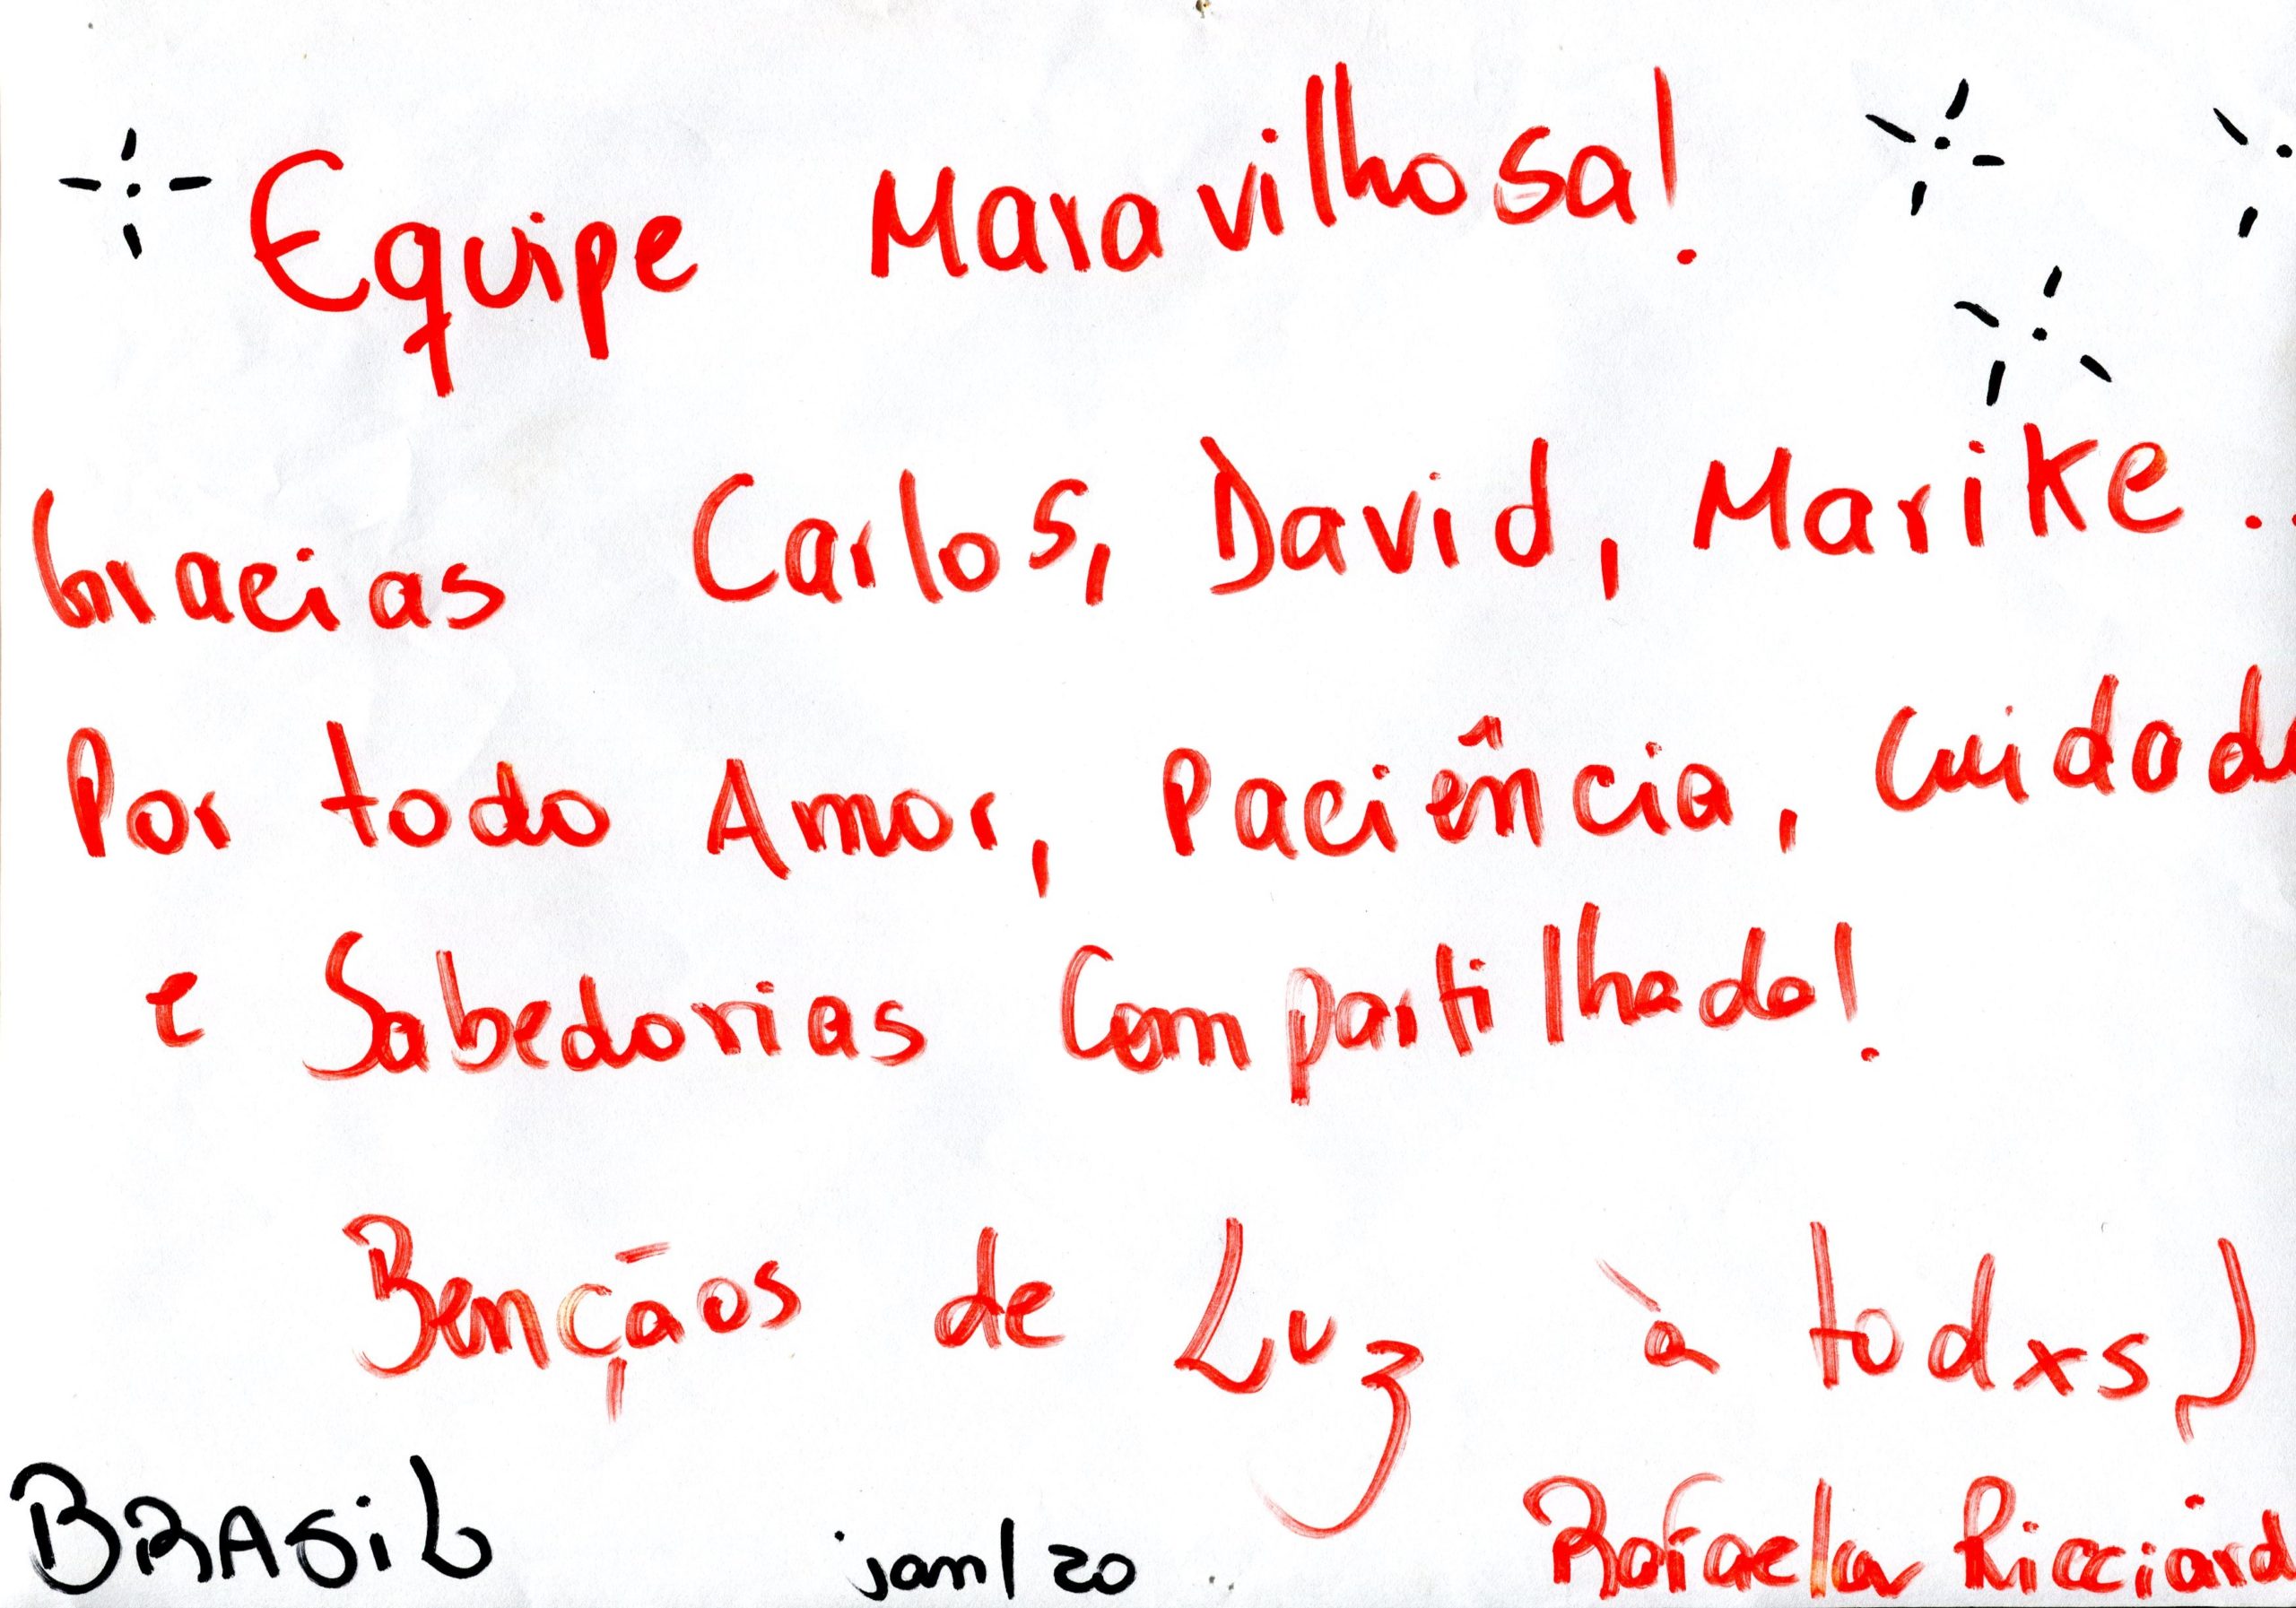 Equipe Maravilhosa!
Gracias Carlos, David, Marike..
Por todo Amor, Paciência, Cuidado
e Sabedorias Compartilhada!
Bençãos de Luz à todxs
BRASiL jan/20 Rafaela Ricciard